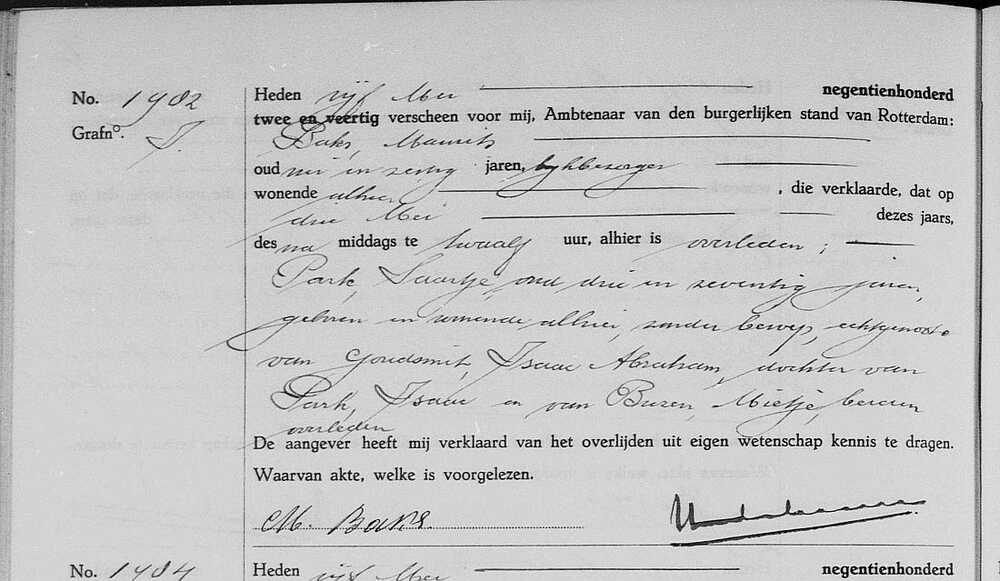 No. 1902
Grafno. I.
Heden vijf Mei negentienhonderd
twee en veertig verscheen voor mij, Ambtenaar van den burgerlijken stand van Rotterdam:
Baks, Maurits
oud in zestig jaren, lijkbezorger
wonende alhier, die verklaarde, dat op
drie Mei dezes jaars,
des na middags te twaalf uur, alhier is overleden;
Park, Saartje, oud drie en zeventig jaren,
geboren en wonende alhier, zonder beroep, echtgenoote
van Goudsmit, Isaac Abraham, dochter van
Park, Isaac en van Buren, Mietje, beiden
overleden
De aangever heeft mij verklaard van het overlijden uit eigen wetenschap kennis te dragen.
Waarvan akte, welke is voorgelezen.
M. Baks
No. 1904
Heden vijf Mei negentienhonderd